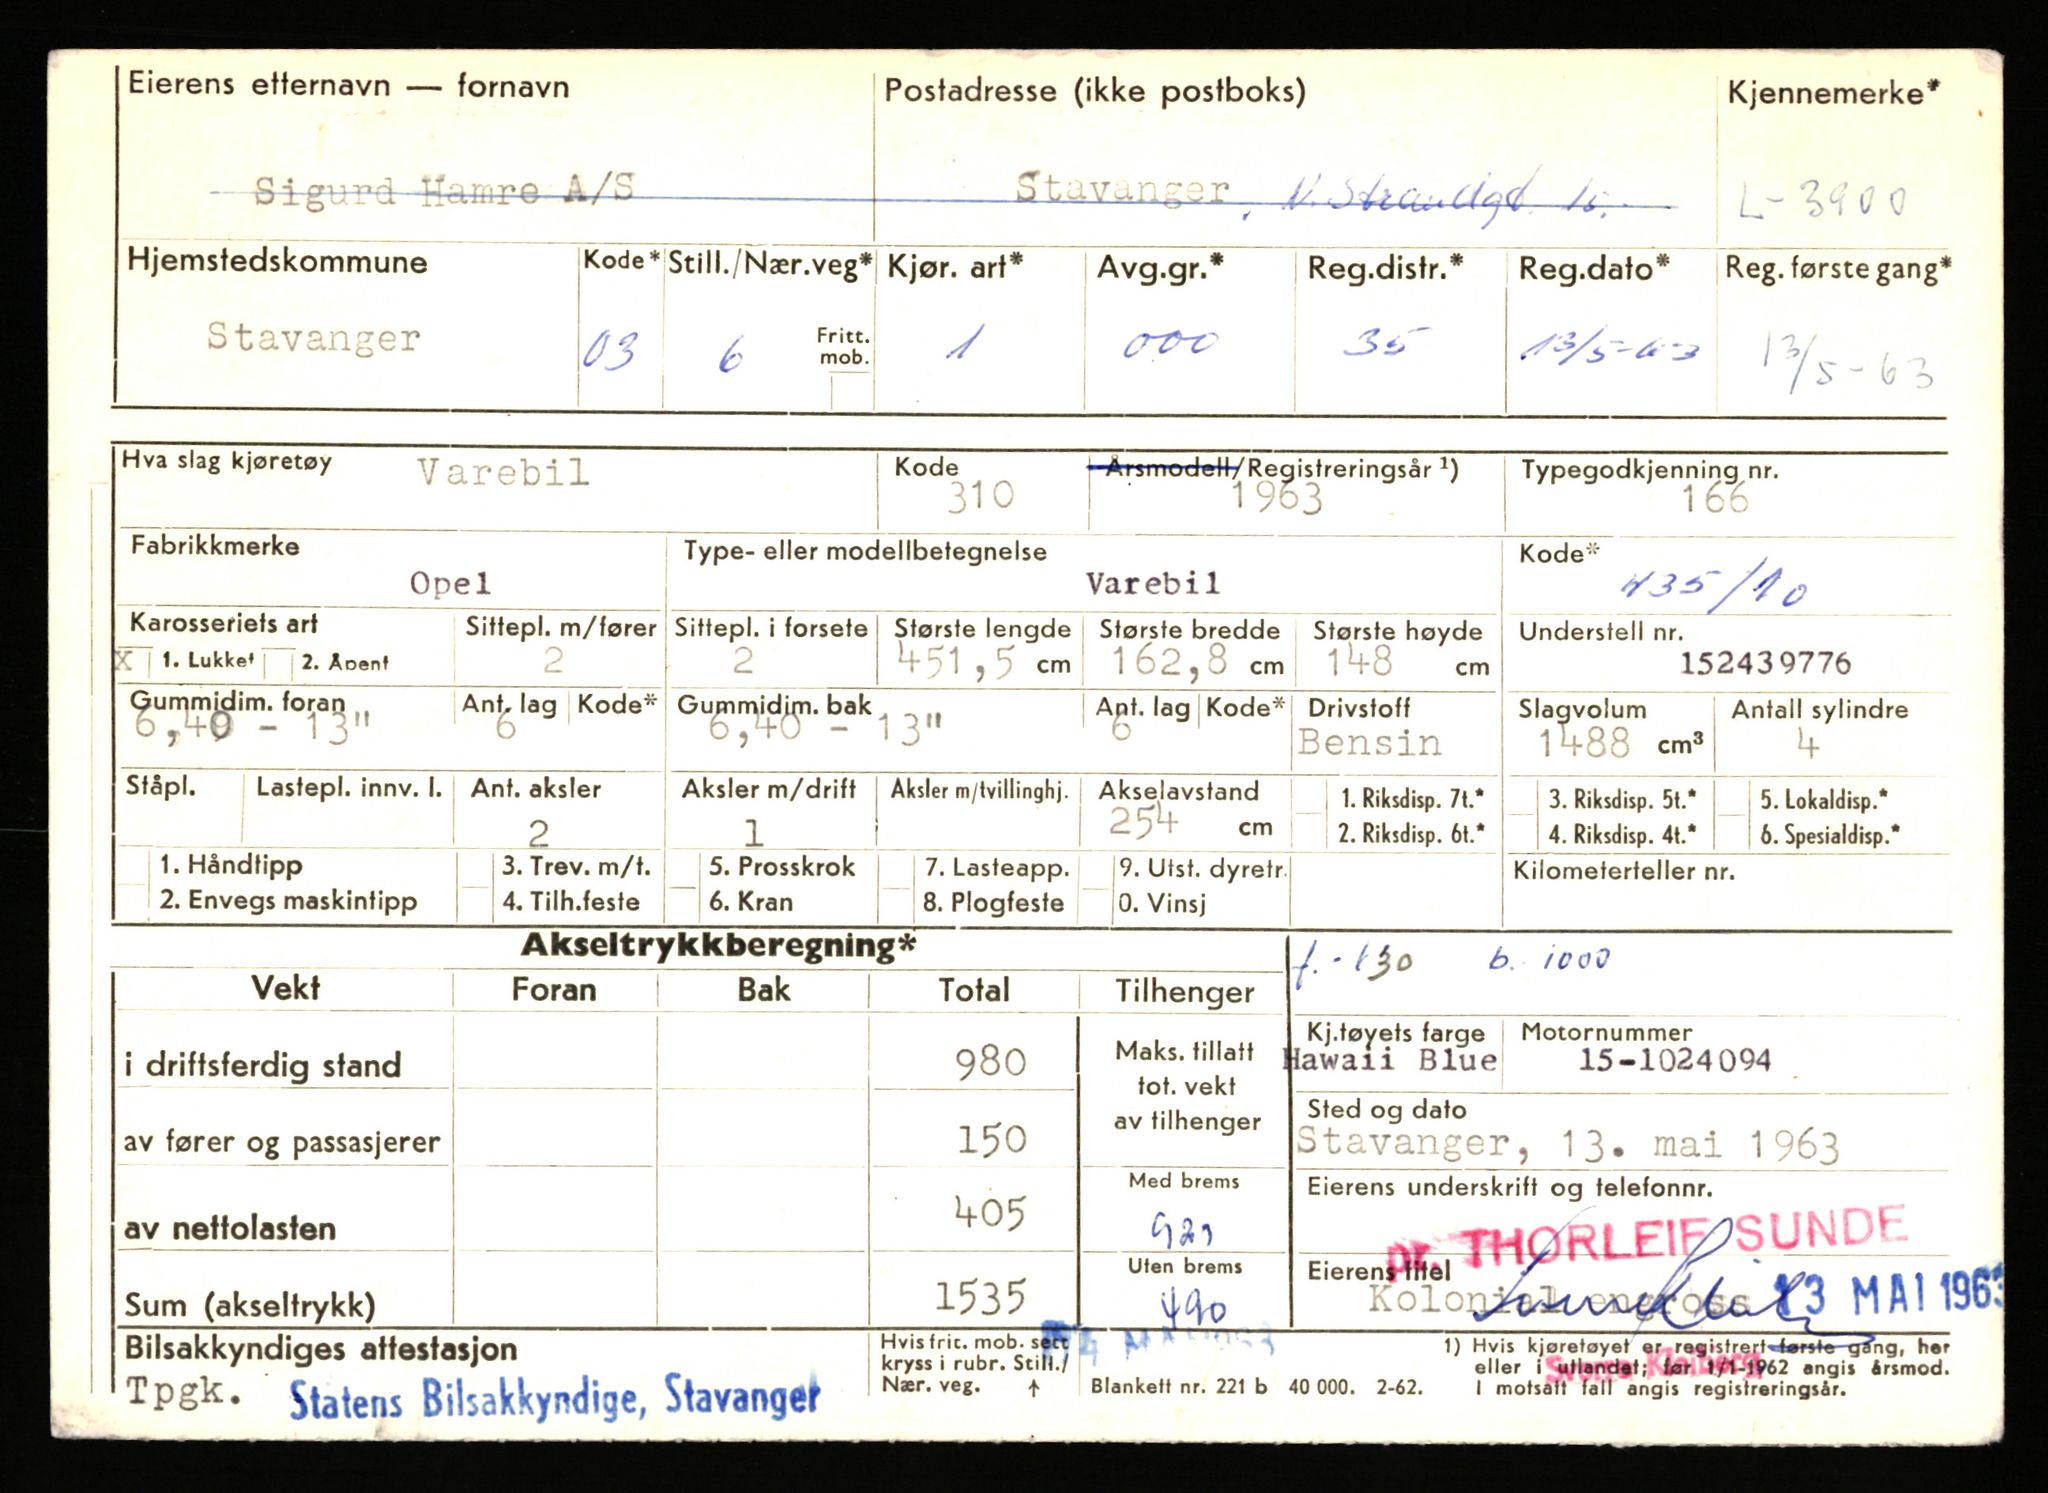 Eierens etternavn — fornavn Postadresse (ikke postboks) Kjennemerke*
Sigurd Hamre A/S Stavanger, N. Strandgt. L-3900
Hjemstedskommune Kode* Still./Nær.veg* Kjør. art* Avg.gr.* Reg.distr.* Reg.dato* Reg. første gang*
Stavanger 03 6 Fritt. mob. 1 000 35 13/5-63 13/5-63
Hva slag kjøretøy Varebil Kode Årsmodell/Registreringsår ¹) Typegodkjenning nr.
310 1963 166
Fabrikkmerke Type- eller modellbetegnelse Kode*
Opel Varebil 435/10
Karosseriets art Sittepl. m/fører Sittepl. i forsete Største lengde Største bredde Største høyde Understell nr.
X 1. Lukket 2. Åpent 2 2 451,5 cm 162,8 cm 148 cm 152439776
Gummidim. foran Ant. lag Kode* Gummidim. bak Ant. lag Kode* Drivstoff Slagvolum Antall sylindre
6,40 - 13" 6 6,40 - 13" 6 Bensin 1488 cm³ 4
Ståpl. Lastepl. innv. l. Ant. aksler Aksler m/drift Aksler m/tvillinghj. Akselavstand 1. Riksdisp. 7t.* 3. Riksdisp. 5t.* 5. Lokaldisp.*
2 1 254 cm 2. Riksdisp. 6t.* 4. Riksdisp. 4t.* 6. Spesialdisp.*
1. Håndtipp 3. Trev. m/t. 5. Prosskrok 7. Lasteapp. 9. Utst. dyretr. Kilometerteller nr.
2. Envegs maskintipp 4. Tilh.feste 6. Kran 8. Plogfeste 0. Vinsj
Akseltrykkberegning* b. 1000
Vekt Foran Bak Total Tilhenger
i driftsferdig stand 980 Maks. tillatt tot. vekt av tilhenger
Kj.tøyets farge Motornummer
Hawaii Blue 15-1024094
Sted og dato
av fører og passasjerer 150 Stavanger, 13. mai 1963
Med brems Eierens underskrift og telefonnr.
av nettolasten 405 pr. THORLEIF SUNDE
Uten brems Eierens titel
Sum (akseltrykk) 1535 490 Kolonial engross 13 MAI 1963
Bilsakkyndiges attestasjon
Tpgk. Statens Bilsakkyndige, Stavanger
Hvis frit. mob. sett
kryss i rubr. Still./
Nær. veg. ↑
Blankett nr. 221 b 40 000. 2-62.
1) Hvis kjøretøyet er registrert første gang, her
eller i utlandet; før 1/1-1962 angis årsmod.
I motsatt fall angis registreringsår.